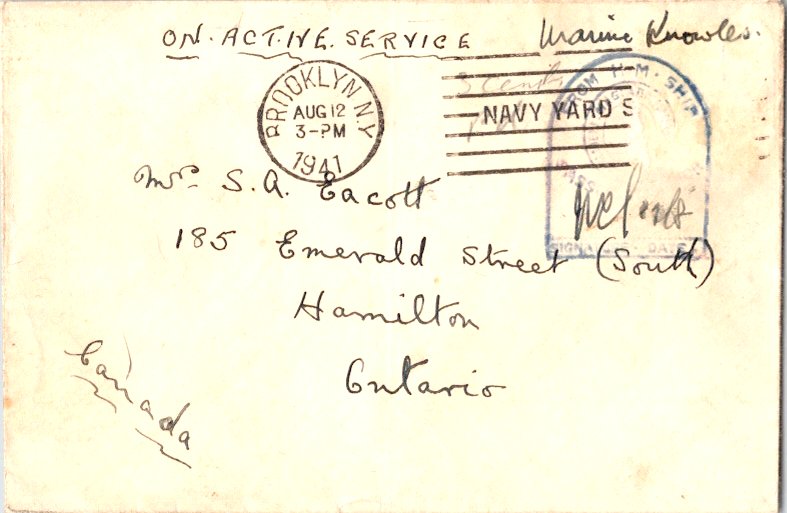 ON. ACTIVE. SERVICE
Marine Knowles.
BROOKLYN. N.Y
AUG 12
3-PM
1941
NAVY YARD S
FROM H·M·SHIP
SIGNATURE DATE
Mr. S.A. Eacott
185 Emerald Street (South)
Hamilton
Ontario
Canada